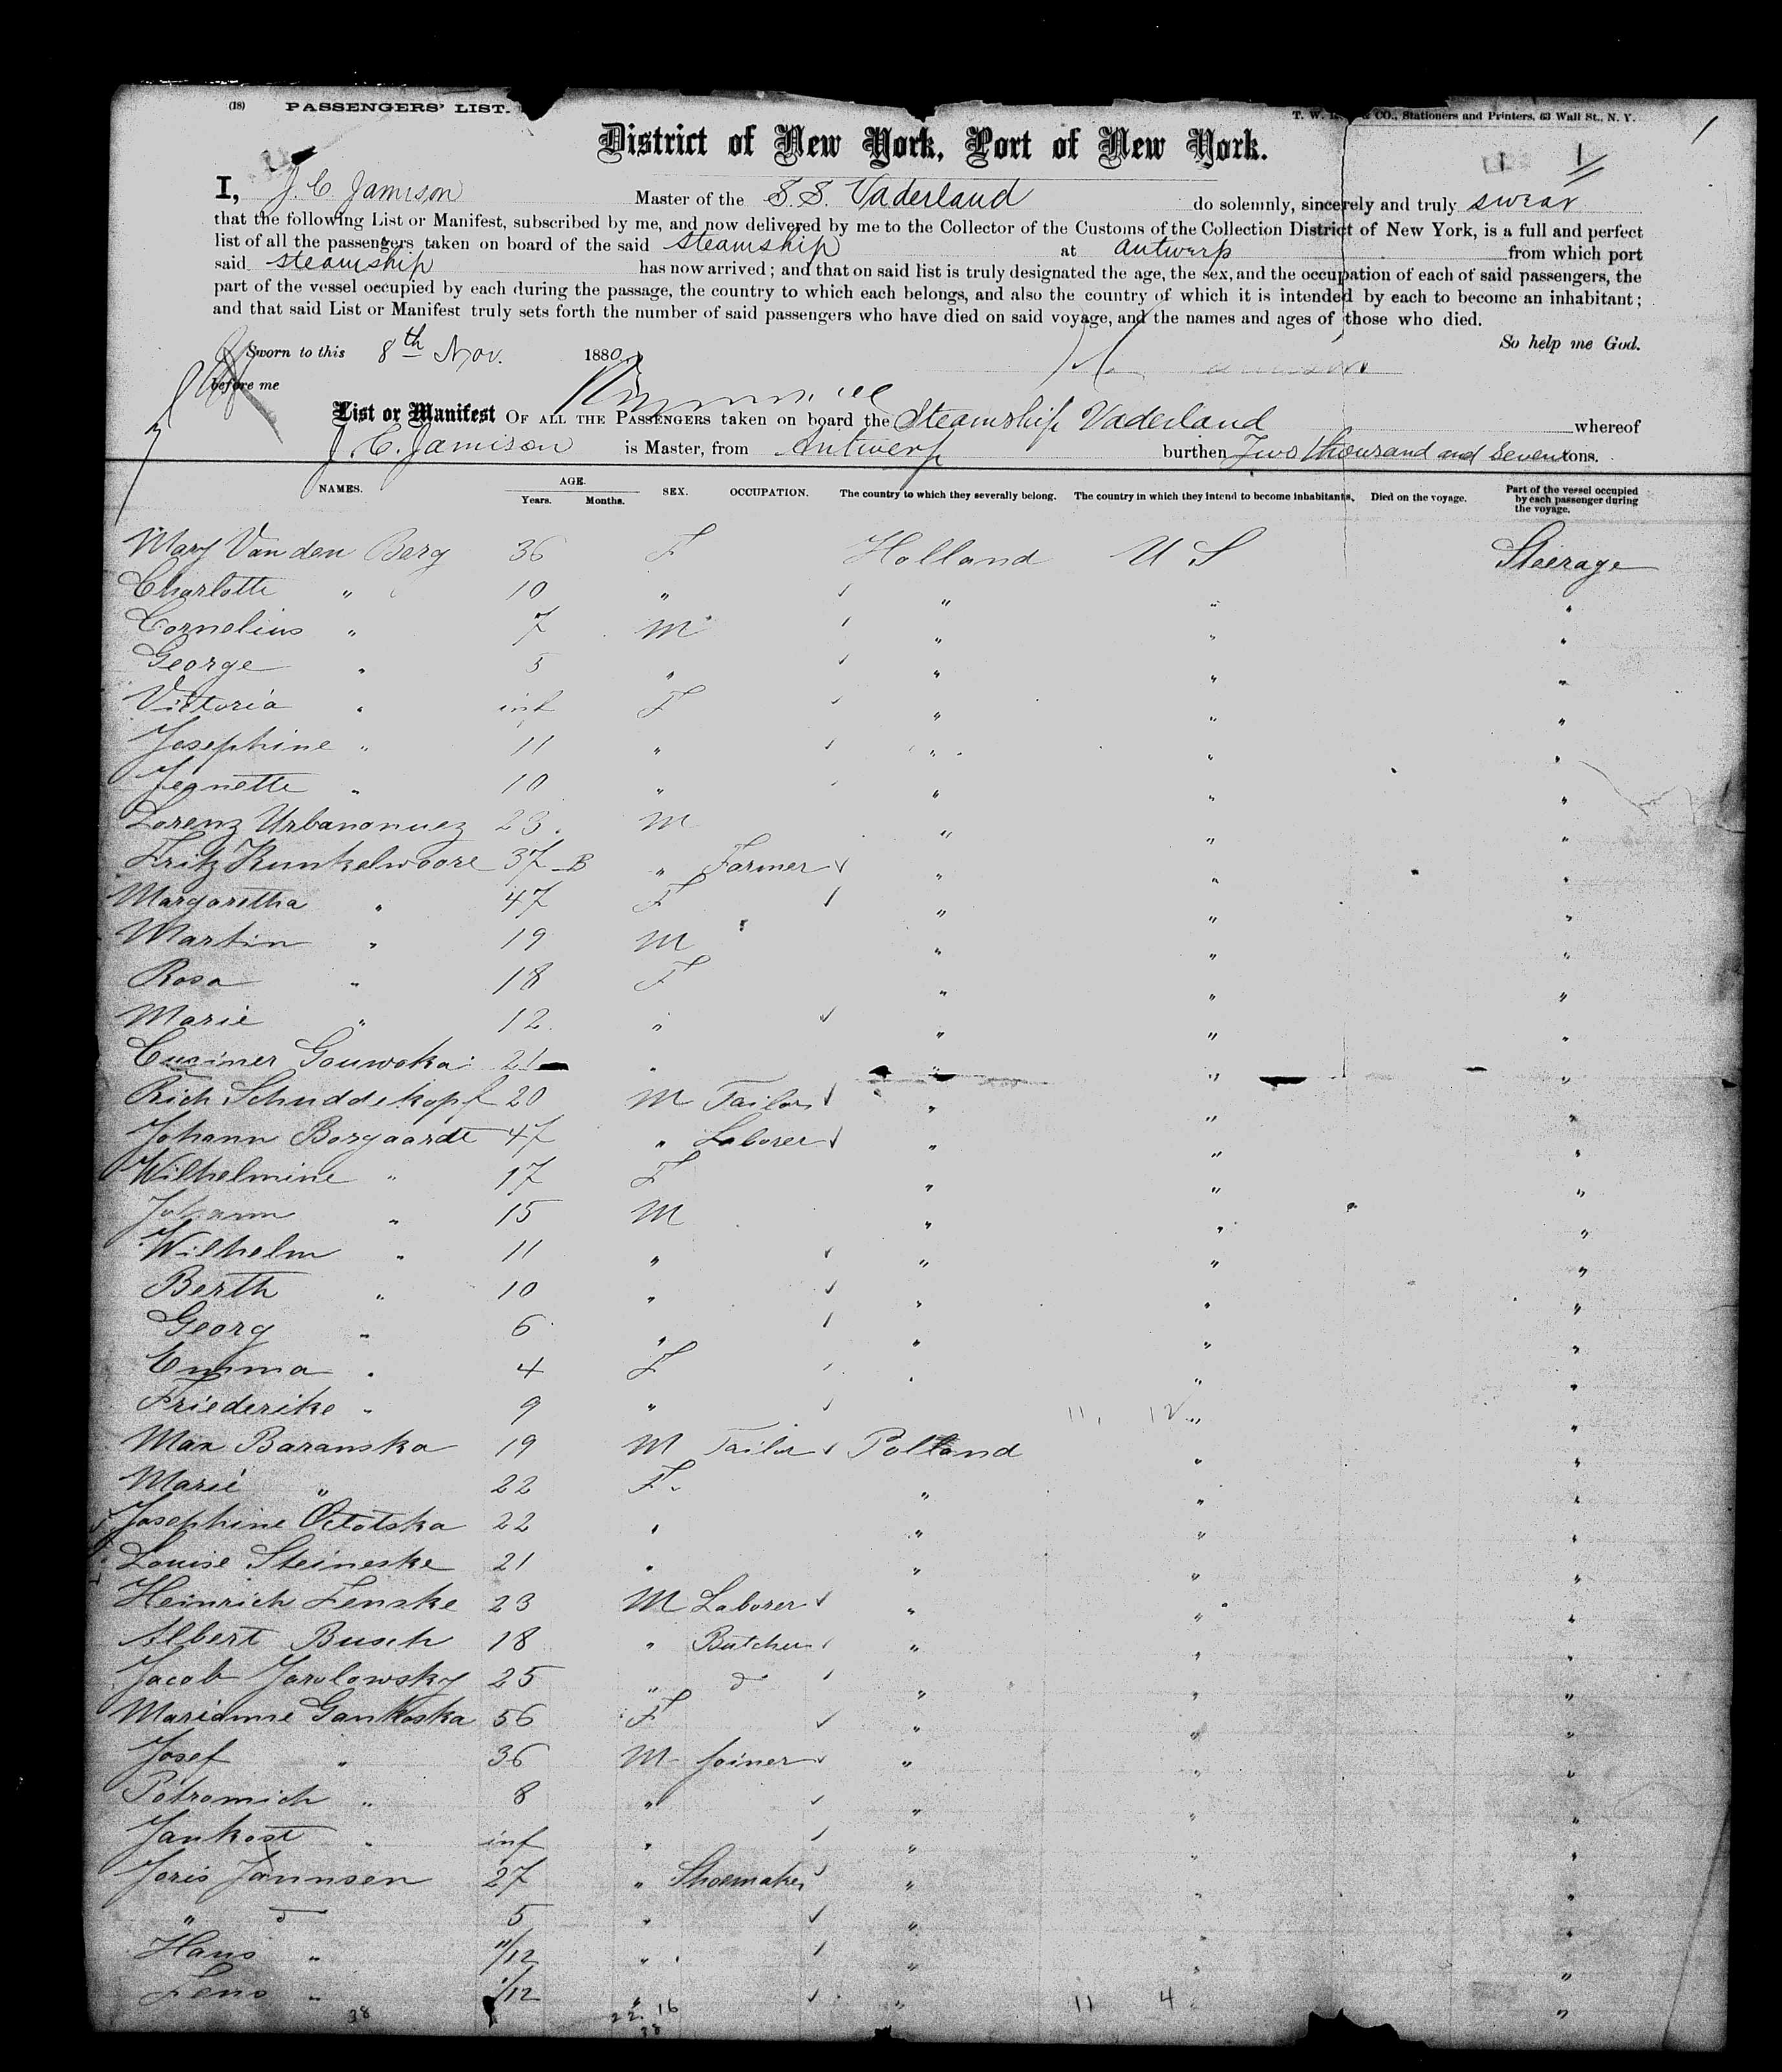 (18) PASSENGERS' LIST.
T. W. & CO., Stationers and Printers, 63 Wall St., N. Y.
1
District of New York, Port of New York.
1
I, J. C. Jamison Master of the S. S. Vaderland do solemnly, sincerely and truly swear
that the following List or Manifest, subscribed by me, and now delivered by me to the Collector of the Customs of the Collection District of New York, is a full and perfect
list of all the passengers taken on board of the said Steamship at Antwerp from which port
said Steamship has now arrived; and that on said list is truly designated the age, the sex, and the occupation of each of said passengers, the
part of the vessel occupied by each during the passage, the country to which each belongs, and also the country of which it is intended by each to become an inhabitant;
and that said List or Manifest truly sets forth the number of said passengers who have died on said voyage, and the names and ages of those who died.
So help me God.
Sworn to this 8th Nov. 1880
before me
List or Manifest OF ALL THE PASSENGERS taken on board the Steamship Vaderland whereof
J. C. Jamison is Master, from Antwerp burthen Two thousand and seven tons.
NAMES. AGE. Years. Months. SEX. OCCUPATION. The country to which they severally belong. The country in which they intend to become inhabitants. Died on the voyage. Part of the vessel occupied by each passenger during the voyage.
Mary Van den Berg 36 F Holland U S Steerage
Charlotte " 10 " " " "
Cornelius " 7 M " " "
George " 5 " " " "
Vittoria " inf F " " "
Josephine " 11 " " " "
Jeanette " 10 " " " "
Lorenz 23 M " " "
Fritz Kunkelwoore 37 B " Farmer " " "
Margaretha " 47 F " " "
Martin " 19 M " " "
Rosa " 18 F " " "
Marie " 12 " " " "
Gouwoka 21 " " " "
Rich Schuddekopf 20 M Tailor " " "
Johann Borgaardt 47 " Laborer " " "
Wilhelmine " 17 F " " "
Johann " 15 M " " "
Wilhelm " 11 " " " "
Berth " 10 " " " "
Georg " 6 " " " "
Emma " 4 F " " "
Friederike " 9 " " 11, 12 " "
Max Baranska 19 M Tailor Polland " "
Marie " 22 F " " "
Josephine Octotska 22 " " " "
Louise Steineske 21 " " " "
Heinrich Fenske 23 M Laborer " " "
Albert Busch 18 " Butcher " " "
Jacob Jarolowsky 25 " d " " "
Marianne Gankoska 56 F " " "
Josef " 36 M Joiner " " "
Potromich " 8 " " " "
Jankost " inf " " " "
Joris Jannsen 27 " Shoemaker " " "
" d 5 " " " "
Hans " 11/12 " " " "
Lens " 1/12 " " 11 4 "
38 22 16
38